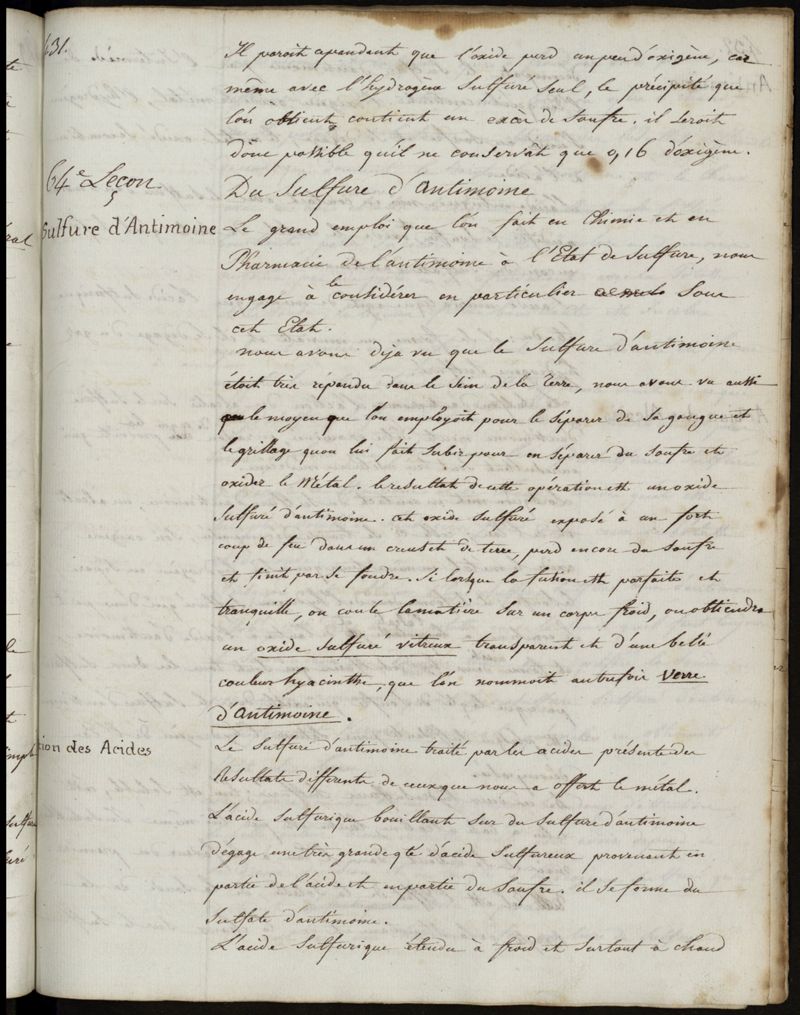 631.
Il paroit cependant que l'oxide perd un peu d'oxigène, car
même avec l'hydrogène Sulfuré Seul, le précipité que
l'on obtient contient un excès de Soufre. il Seroit
donc possible qu'il ne conservât que 0,16 d'oxigène.
64e Leçon
Du Sulfure d'antimoine
Sulfure d'Antimoine
Le grand emploi que l'on fait en Chimie et en
Pharmacie de l'antimoine à l'Etat de Sulfure, nous
engage à le considérer en particulier Sous
cet Etat.
nous avons déja vu que le Sulfure d'antimoine
étoit très répandu dans le Sein de la terre, nous avons vu aussi
le moyen que l'on employoit pour le Séparer de Sa gangue et
le grillage qu'on lui fait Subir pour en Séparer du Soufre et
oxider le Métal. le resultat de cette opération est un oxide
Sulfuré d'antimoine. cet oxide Sulfuré exposé à un fort
coup de feu dans un creuset de terre, perd encore du Soufre
et finit par Se fondre. Si lorsque la fusion est parfaite et
tranquille, on coule la matière Sur un corps froid, on obtiendra
un oxide Sulfuré vitreux transparent et d'une belle
couleur hyacinthe, que l'on nommoit autrefois Verre
d'Antimoine.
tion des Acides
Le Sulfure d'antimoine traité par les acides présente des
Résultats différents de ceux que nous a offert le métal.
L'acide Sulfurique bouillant Sur du Sulfure d'antimoine
dégage une très grande qté d'acide Sulfureux provenant en
partie de l'acide et en partie du Soufre. il Se forme du
Sulfate d'antimoine.
L'acide Sulfurique étendu à froid et Surtout à chaud